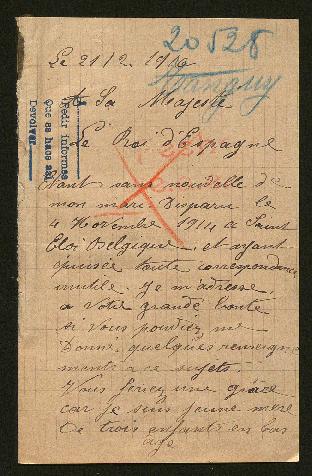 20528
Le 21/2 1916
Tanguy
A Sa Majesté
Pedir informes
Que se hace así
Devolver
Le Roi d'Espagne
Etant sans nouvelle de
mon mari Disparu le
4 Novembre 1914 a Saint
Eloi Belgique et ayant
épuisée toute correspondance
inutile. Je m'adresse,
a votre grande bonté
si vous pouviez me
Donné quelques renseigne
ments a ce sujets.
Vous feriez une grâce
car je suis jeune mère
de trois enfants en bas
age